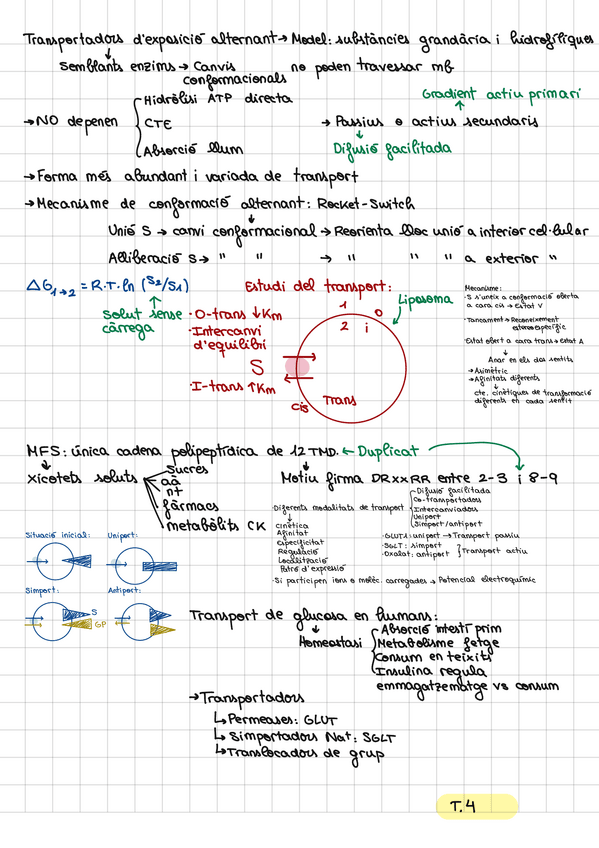 Transportadors d'exposició alternant → Model: substàncies grandària i hidrofíliques
semblants enzims → Canvis conformacionals
no poden travessar mb
→ NO depenen
Hidròlisi ATP directa
CTE
Absorció llum
Gradient actiu primari
→ Passius o actius secundaris
Difusió facilitada
→ Forma més abundant i variada de transport
→ Mecanisme de conformació alternant: Rocket-Switch
Unió S → canvi conformacional → Reorienta lloc unió a interior cel·lular
Alliberació S → " " → " " " a exterior "
ΔG1→2 = R.T. ln (S2/S1)
solut sense càrrega
Estudi del transport:
· O-trans ↓Km
· Intercanvi d'equilibri
S
· I-trans ↑Km
1 o
2 i
Liposoma
cis
Trans
Mecanisme:
· S s'uneix a conformació oberta
a cara cis → Estat V
· Tancament → Reconeixement
estereoespecífic
· Estat obert a cara trans → Estat A
Anar en els dos sentits
→ Asimètric
→ Afinitats diferents
cte. cinètiques de transformació
diferents en cada sentit
MFS: única cadena polipeptídica de 12 TMD. ← Duplicat
xicotets soluts
Sucres
aà
nt
fàrmacs
metabòlits CK
Motiu firma DRxxRR entre 2-3 i 8-9
· Diferents modalitats de transport
Difusió facilitada
Co-transportadors
Intercanviadors
Uniport
Simport/antiport
Cinètica
Afinitat
Especificitat
Regulació
Localització
Patró d'expresió
· GLUT1: uniport → Transport passiu
· SGLT: simport
· Oxalat: antiport
Transport actiu
· Si participen ions o molèc. carregades → Potencial electroquímic
Situació inicial:
Uniport:
Simport:
Antiport:
S
GP
Transport de glucosa en humans:
Homeostasi
Absorció intestí prim
Metabolisme fetge
Consum en teixits
Insulina regula
emmagatzematge vs consum
→ Transportadors
↳ Permeases: GLUT
↳ Simportadors Na+: SGLT
↳ Translocadors de grup
T.4